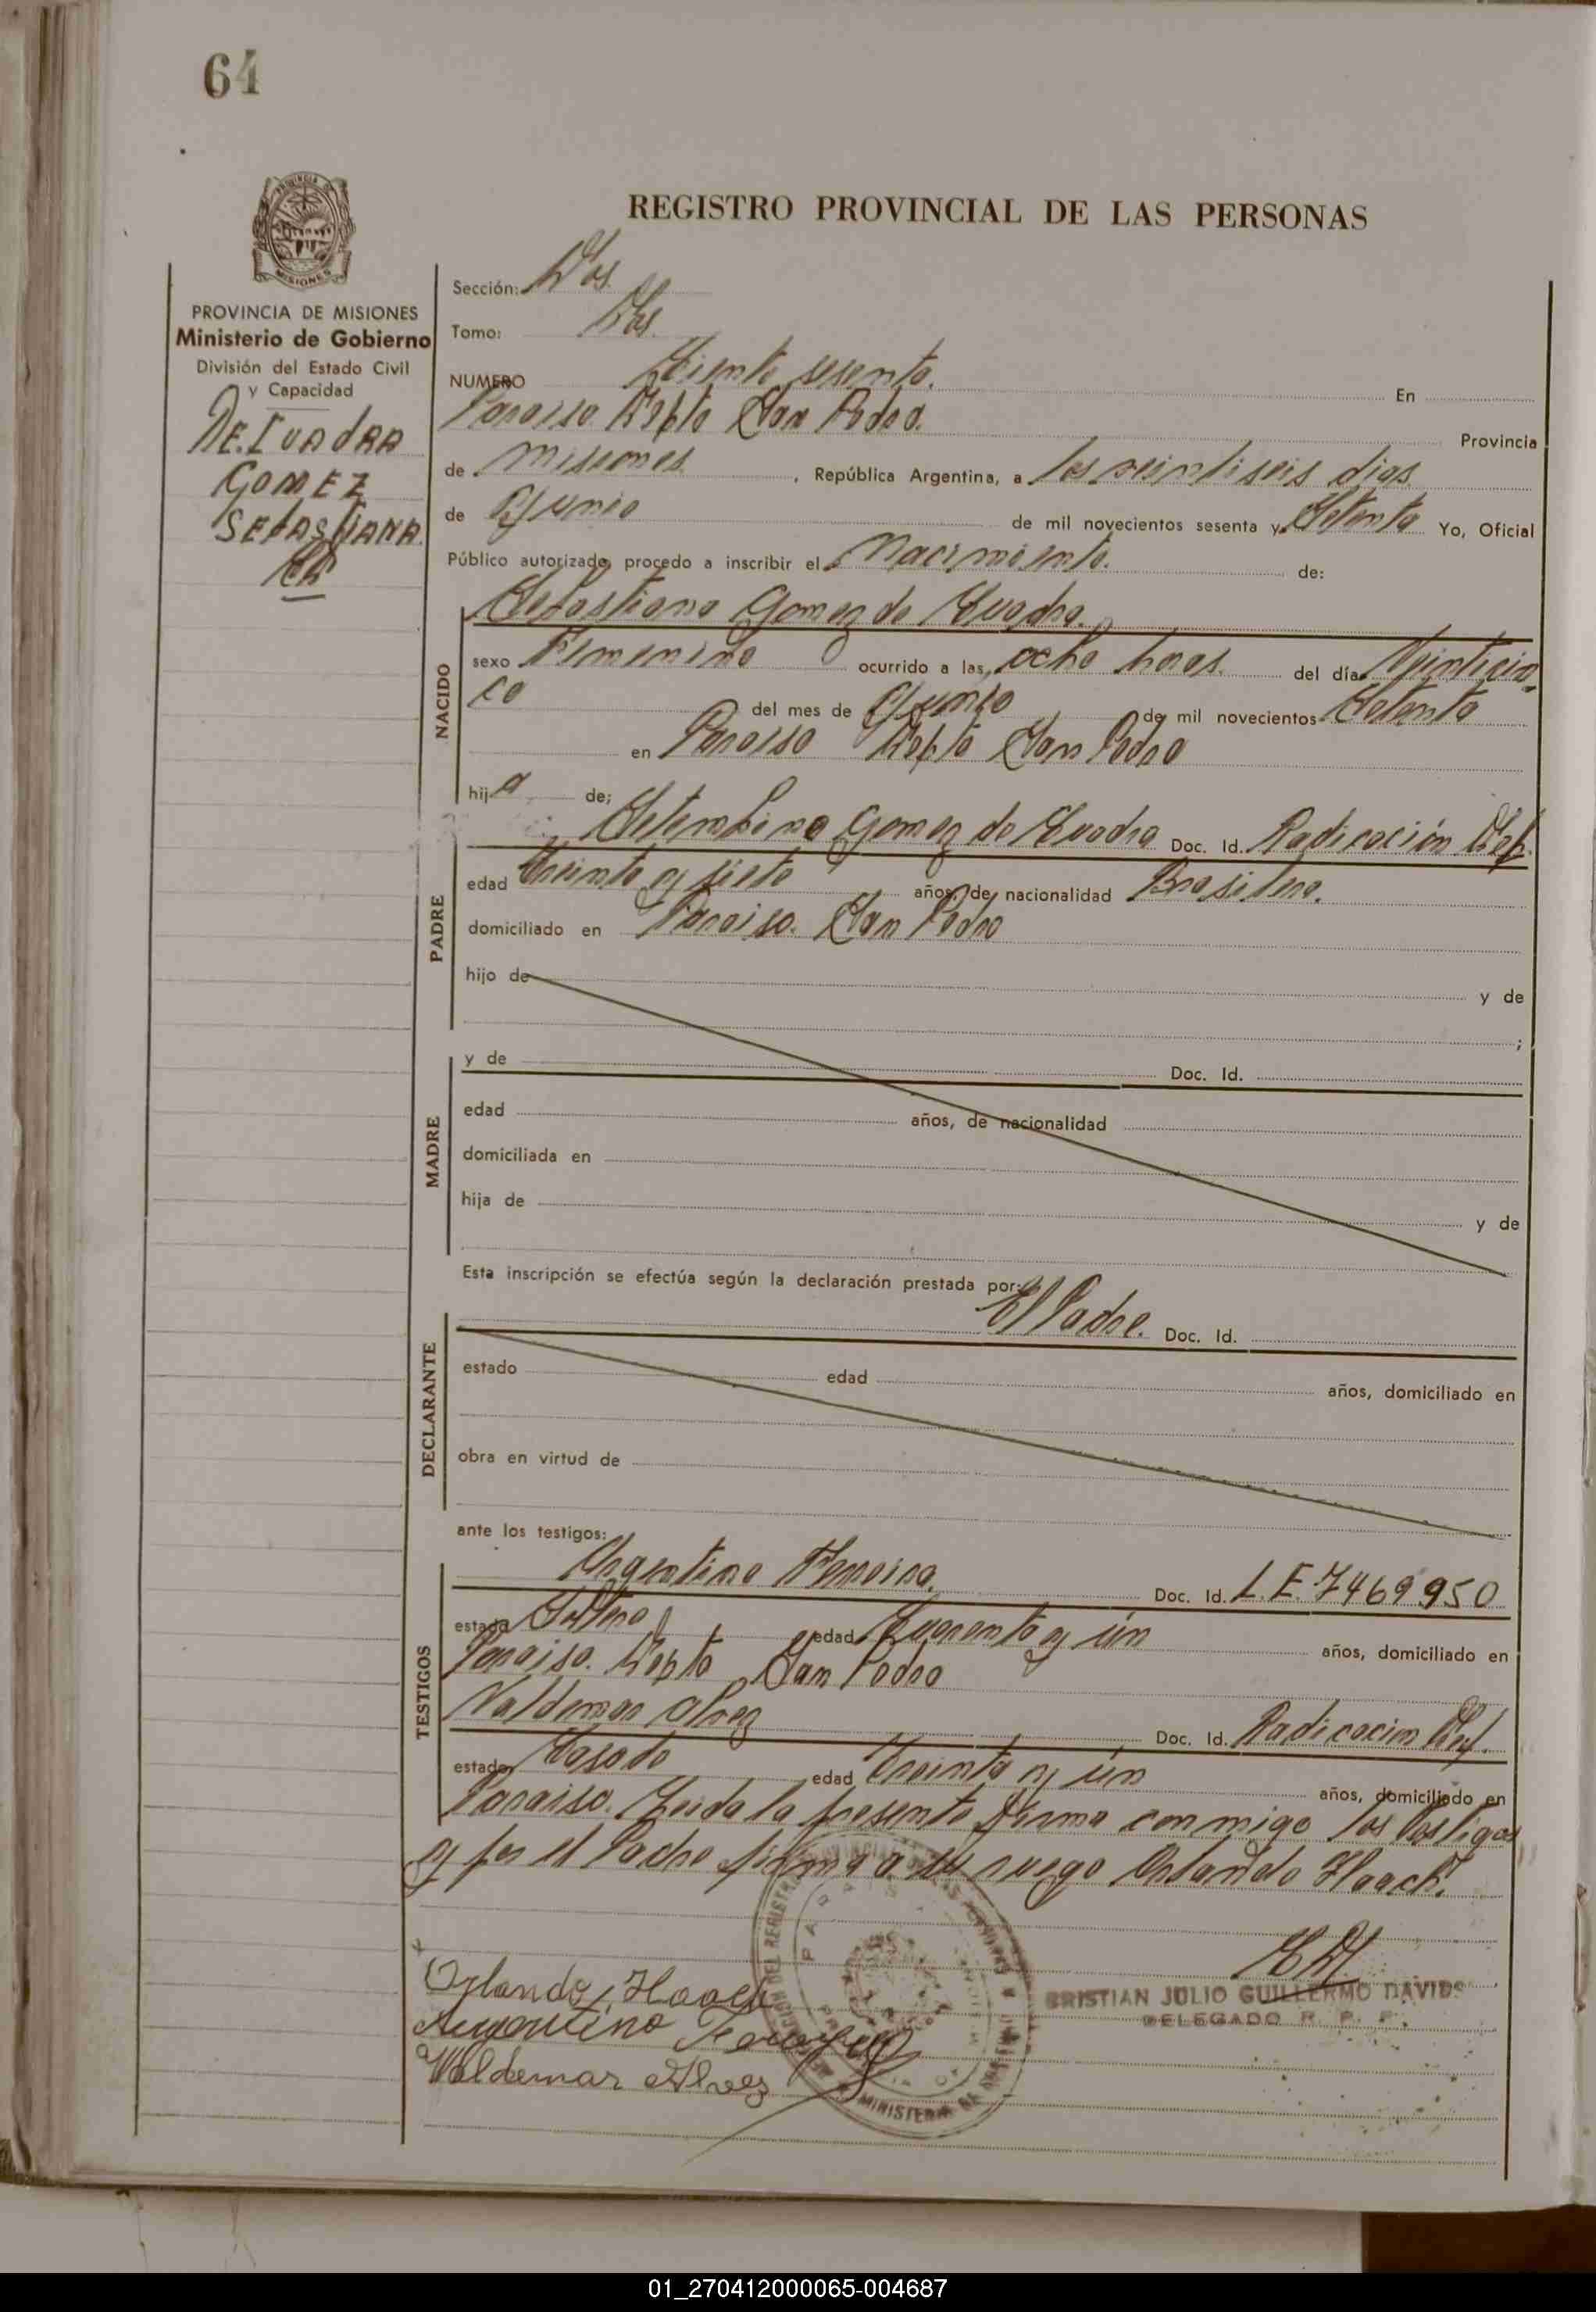 64
REGISTRO PROVINCIAL DE LAS PERSONAS
PROVINCIA DE MISIONES
Ministerio de Gobierno
División del Estado Civil
y Capacidad
DE.CUADRA
GOMEZ
SEBASTIANA.
Sección: Dos.
Tomo: Dos.
NUMERO Ciento sesenta. En
Paraiso Depto San Pedro. Provincia
de Misiones , República Argentina, a los veintiseis dias
de Junio de mil novecientos sesenta y Setenta Yo, Oficial
Público autorizado, procedo a inscribir el Nacimiento. de:
NACIDO
Sebastiana Gomez de Cuadra.
sexo Femenino ocurrido a las, ocho horas. del día Veinticin-
co del mes de Junio de mil novecientos Setenta
en Paraiso Depto San Pedro
hija de;
PADRE
Setembino Gomez de Cuadra Doc. Id. Radicación Def.
edad Treinta y siete años, de nacionalidad Brasilera.
domiciliado en Paraiso. San Pedro
hijo de y de
;
MADRE
y de Doc. Id.
edad años, de nacionalidad
domiciliada en
hija de y de
Esta inscripción se efectúa según la declaración prestada por:
DECLARANTE
El Padre. Doc. Id.
estado edad años, domiciliado en
obra en virtud de
ante los testigos:
TESTIGOS
Argentino Ferreira. Doc. Id. L.E. 7469950
estado Soltero edad Cuarenta y ún años, domiciliado en
Paraiso. Depto San Pedro
Valdemar Alvez Doc. Id. Radicacion Def.
estado Casado edad Treinta y ún años, domiciliado en
Paraiso. Leida la presente firma conmigo los testigos
y por el Padre firma a su ruego Orlando Haack.
Orlando Haack
Argentino Ferreyra
Valdemar Alvez
CRISTIAN JULIO GUILLERMO DAVIDS
DELEGADO R. P. P.
01_270412000065-004687